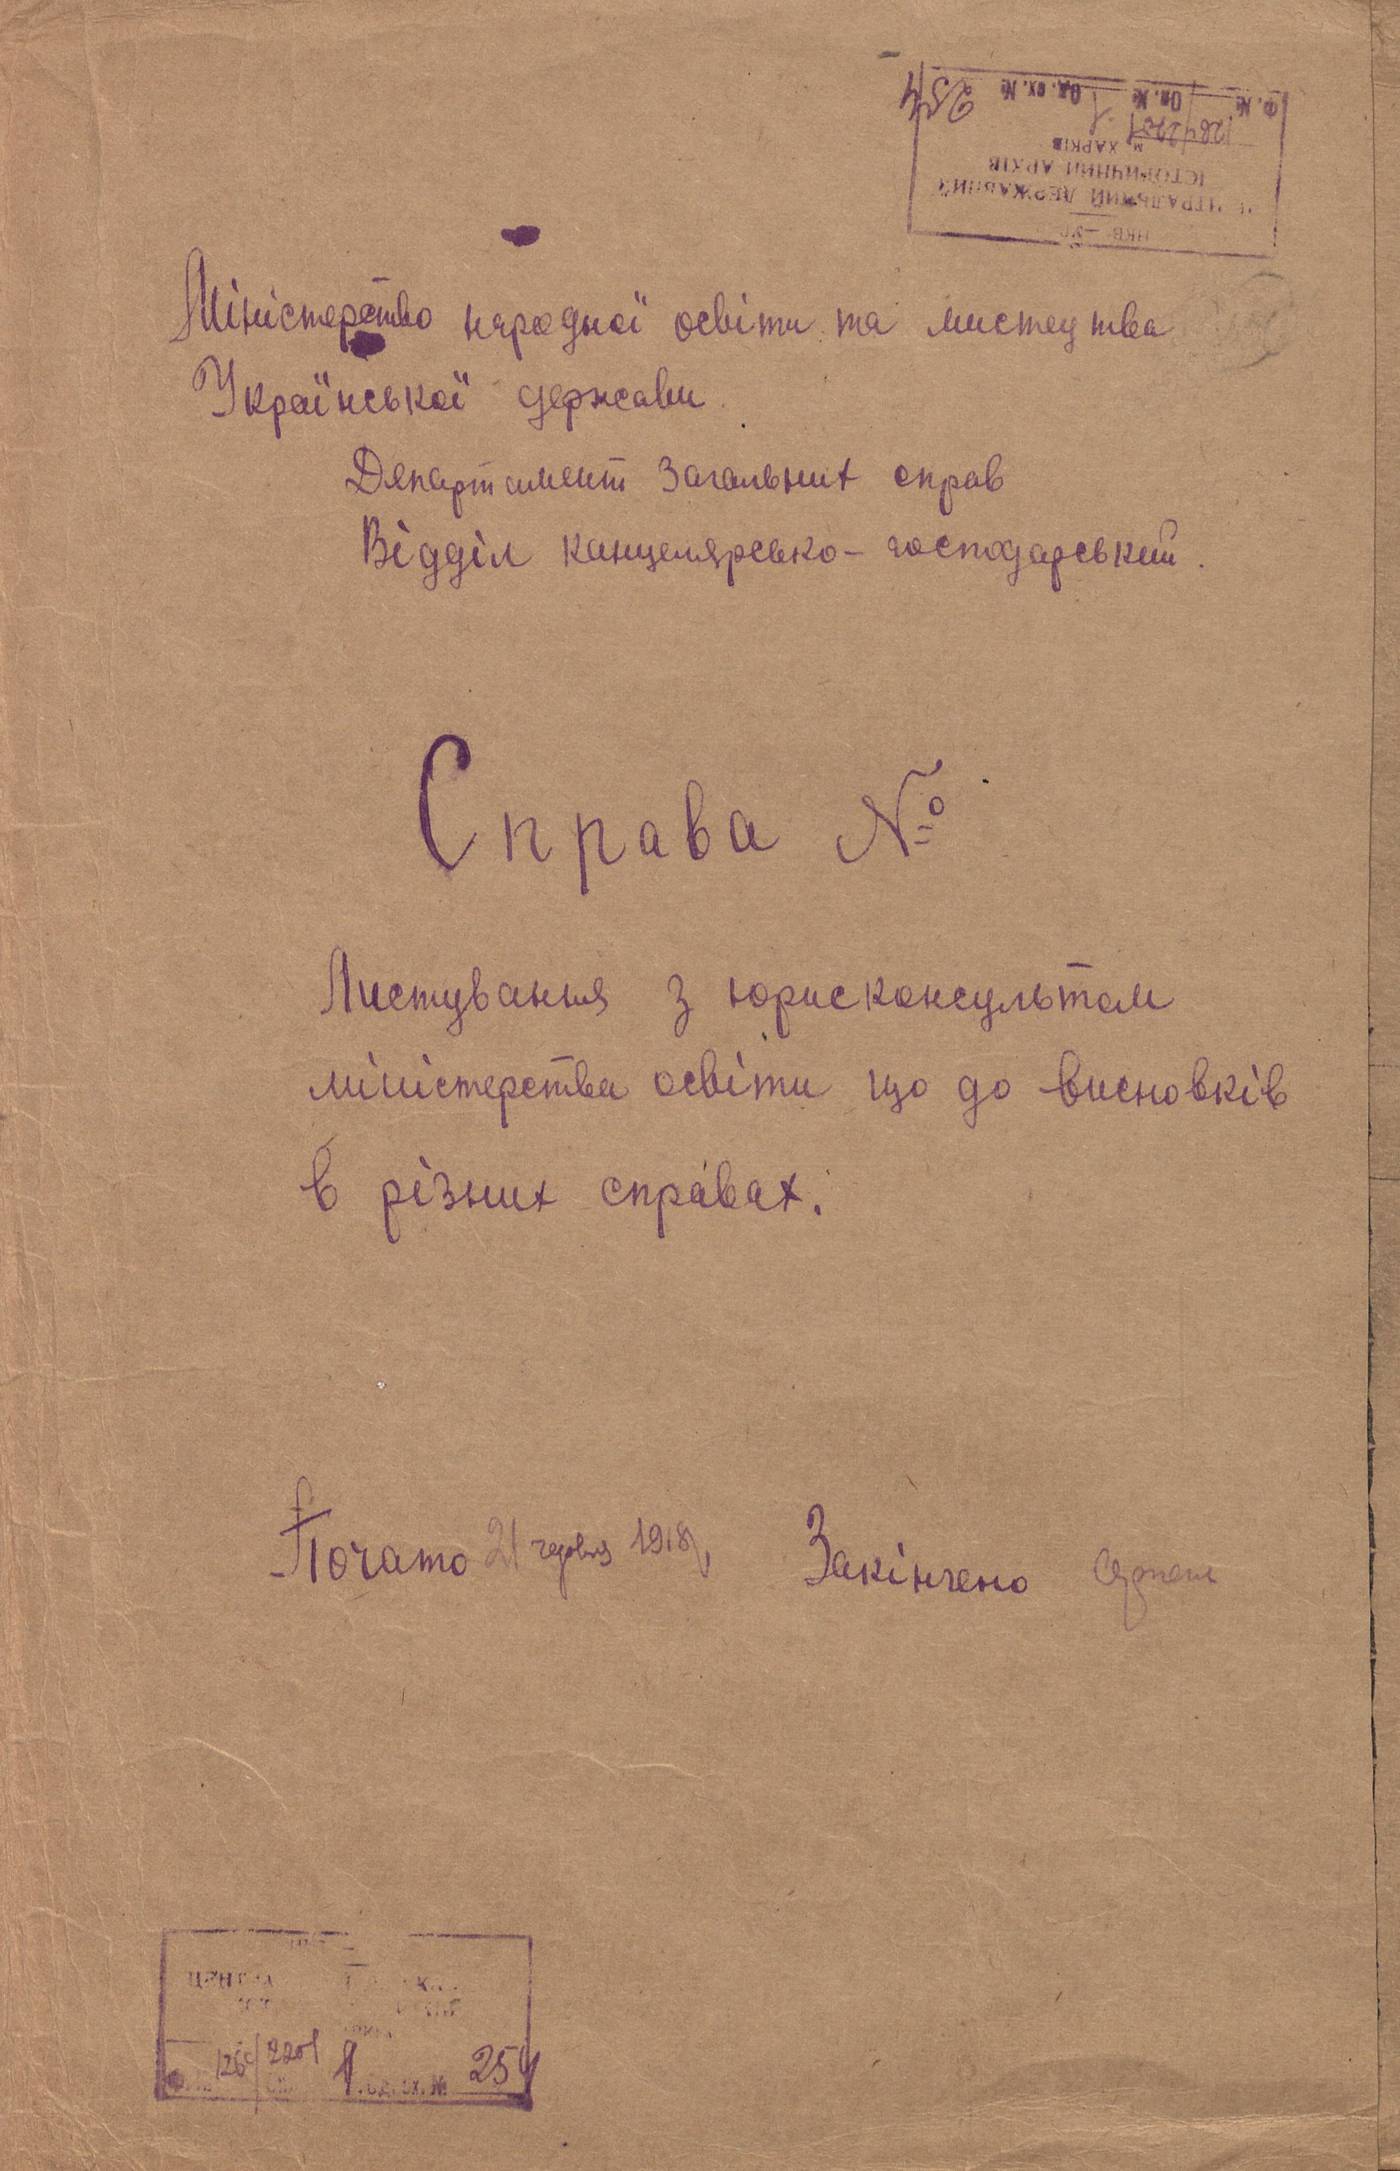 НКВ – УС
ЦЕНТРАЛЬНИЙ ДЕРЖАВНИЙ
ІСТОРИЧНИЙ АРХІВ
м. ХАРКІВ
Ф. № Оп. № 1 Од. ох. № 254
Міністерство народної освіти та мистецтва
Української держави.
Департамент Загальних справ
Відділ канцелярсько-господарський.
Справа №
Листування з юрисконсультом
міністерства освіти що до висновків
в різних справах.
Почато 21 червня 1918 Закінчено
2201 1 од. ох. № 254